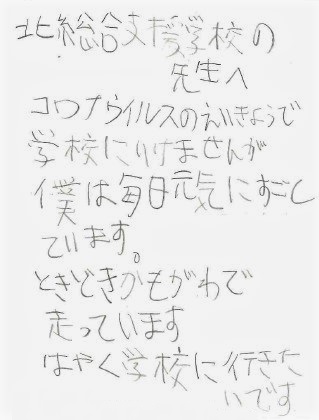 北総合支援学校の
先生へ
コロナウイルスのえいきょうで
学校にいけませんが
僕は毎日元気にすごし
ています。
ときどきかもがわで
走っています
はやく学校に行きた
いです